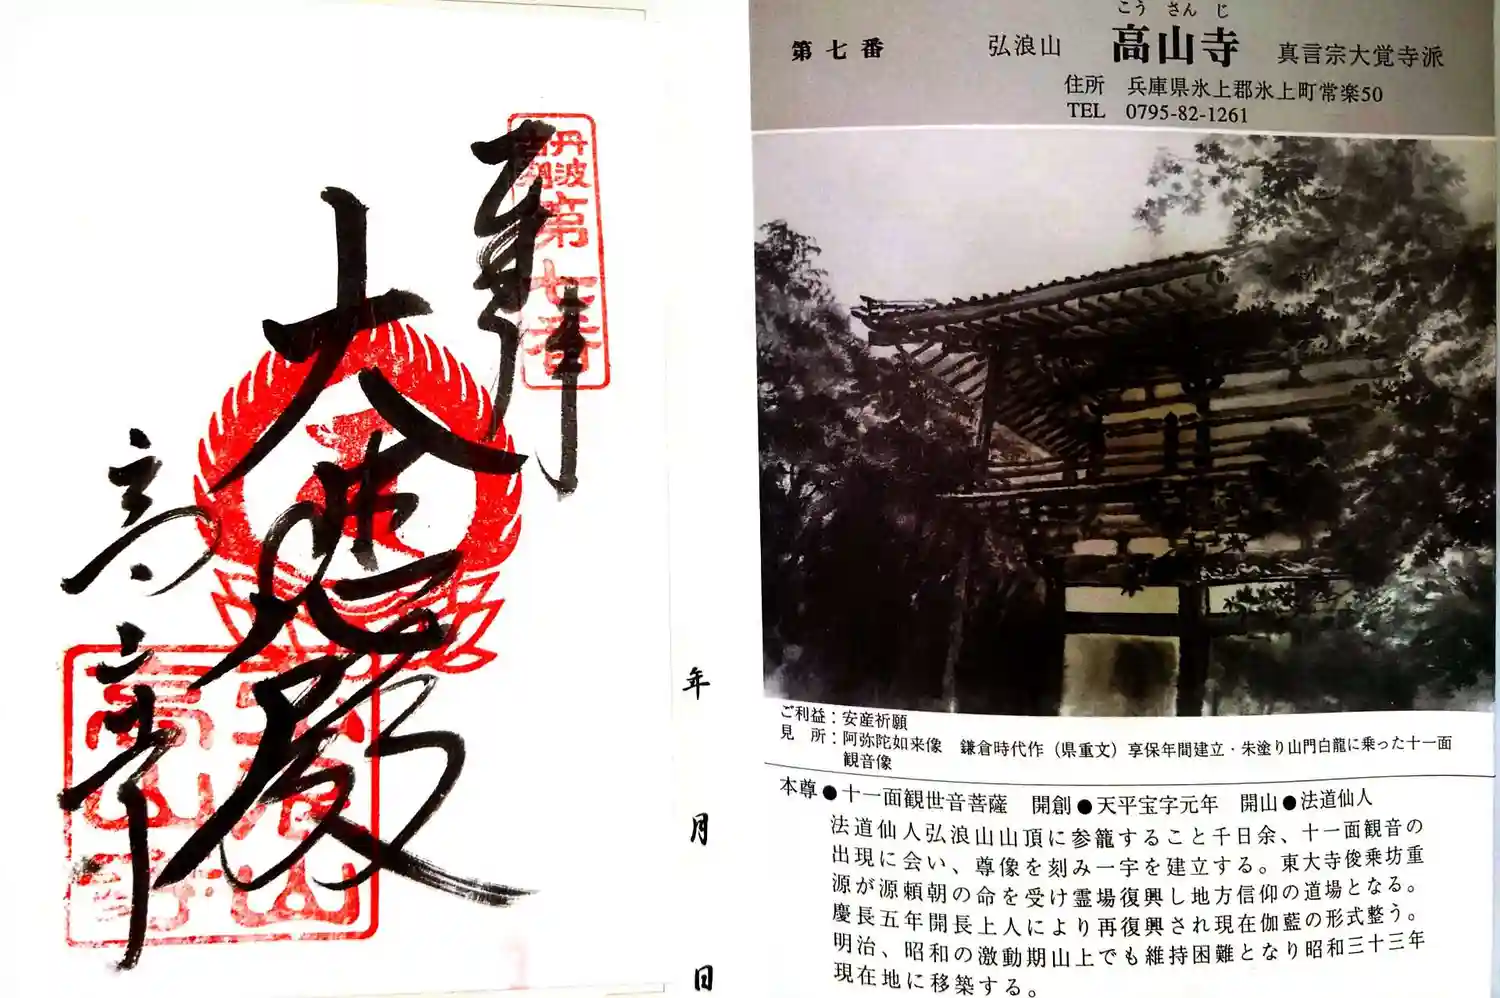 奉拝
丹波
第七番
大悲殿
高山寺
年
月
日
こうさんじ
第七番 弘浪山 高山寺 真言宗大覚寺派
住所 兵庫県氷上郡氷上町常楽50
TEL 0795-82-1261
ご利益:安産祈願
見 所:阿弥陀如来像 鎌倉時代作(県重文)享保年間建立・朱塗り山門白龍に乗った十一面
観音像
本尊●十一面観世音菩薩 開創●天平宝字元年 開山●法道仙人
法道仙人弘浪山山頂に参籠すること千日余、十一面観音の
出現に会い、尊像を刻み一宇を建立する。東大寺俊乗坊重
源が源頼朝の命を受け霊場復興し地方信仰の道場となる。
慶長五年開長上人により再復興され現在伽藍の形式整う。
明治、昭和の激動期山上でも維持困難となり昭和三十三年
現在地に移築する。